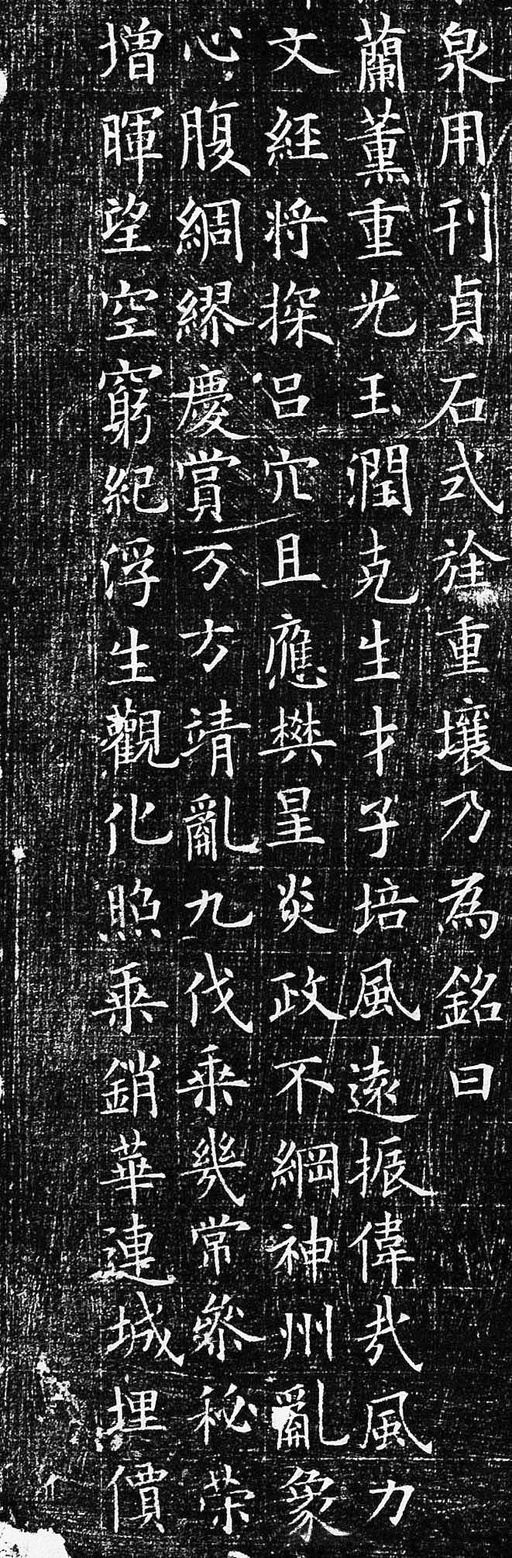 泉用刊貞石式旌重壤乃為銘曰
蘭薰重光玉潤克生才子培風遠振偉哉風力
文經将探呂穴且應樊星炎政不綱神州亂象
心腹綢繆慶賞万方靖亂九伐乘幾常參秘荣
増暉望空窮紀浮生觀化照乘銷華連城埋價